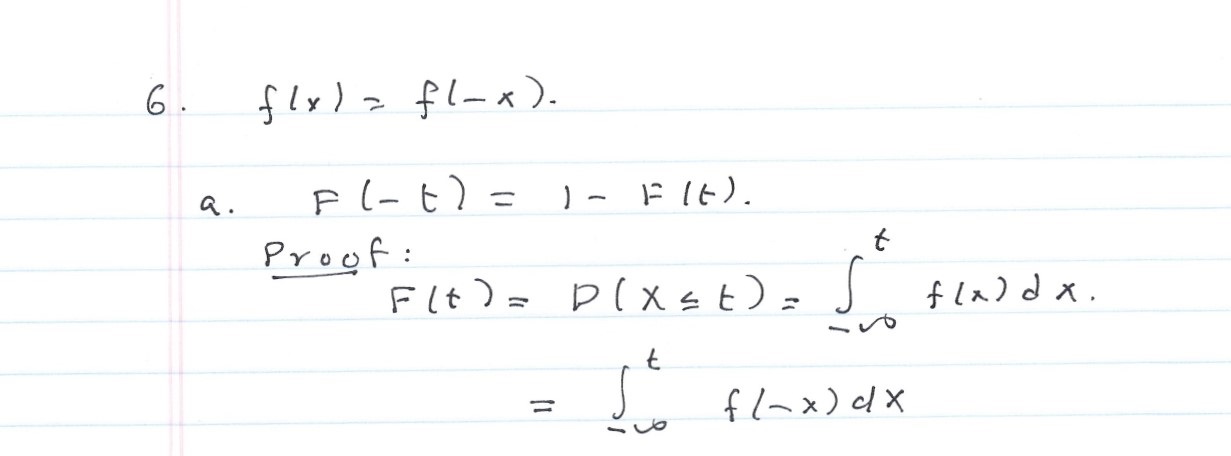 6. f(x) = f(-x).
a. F(-t) = 1 - F(t).
Proof:
F(t) = P(X ≤ t) = ∫_{-∞}^{t} f(x) dx.
= ∫_{-∞}^{t} f(-x) dx